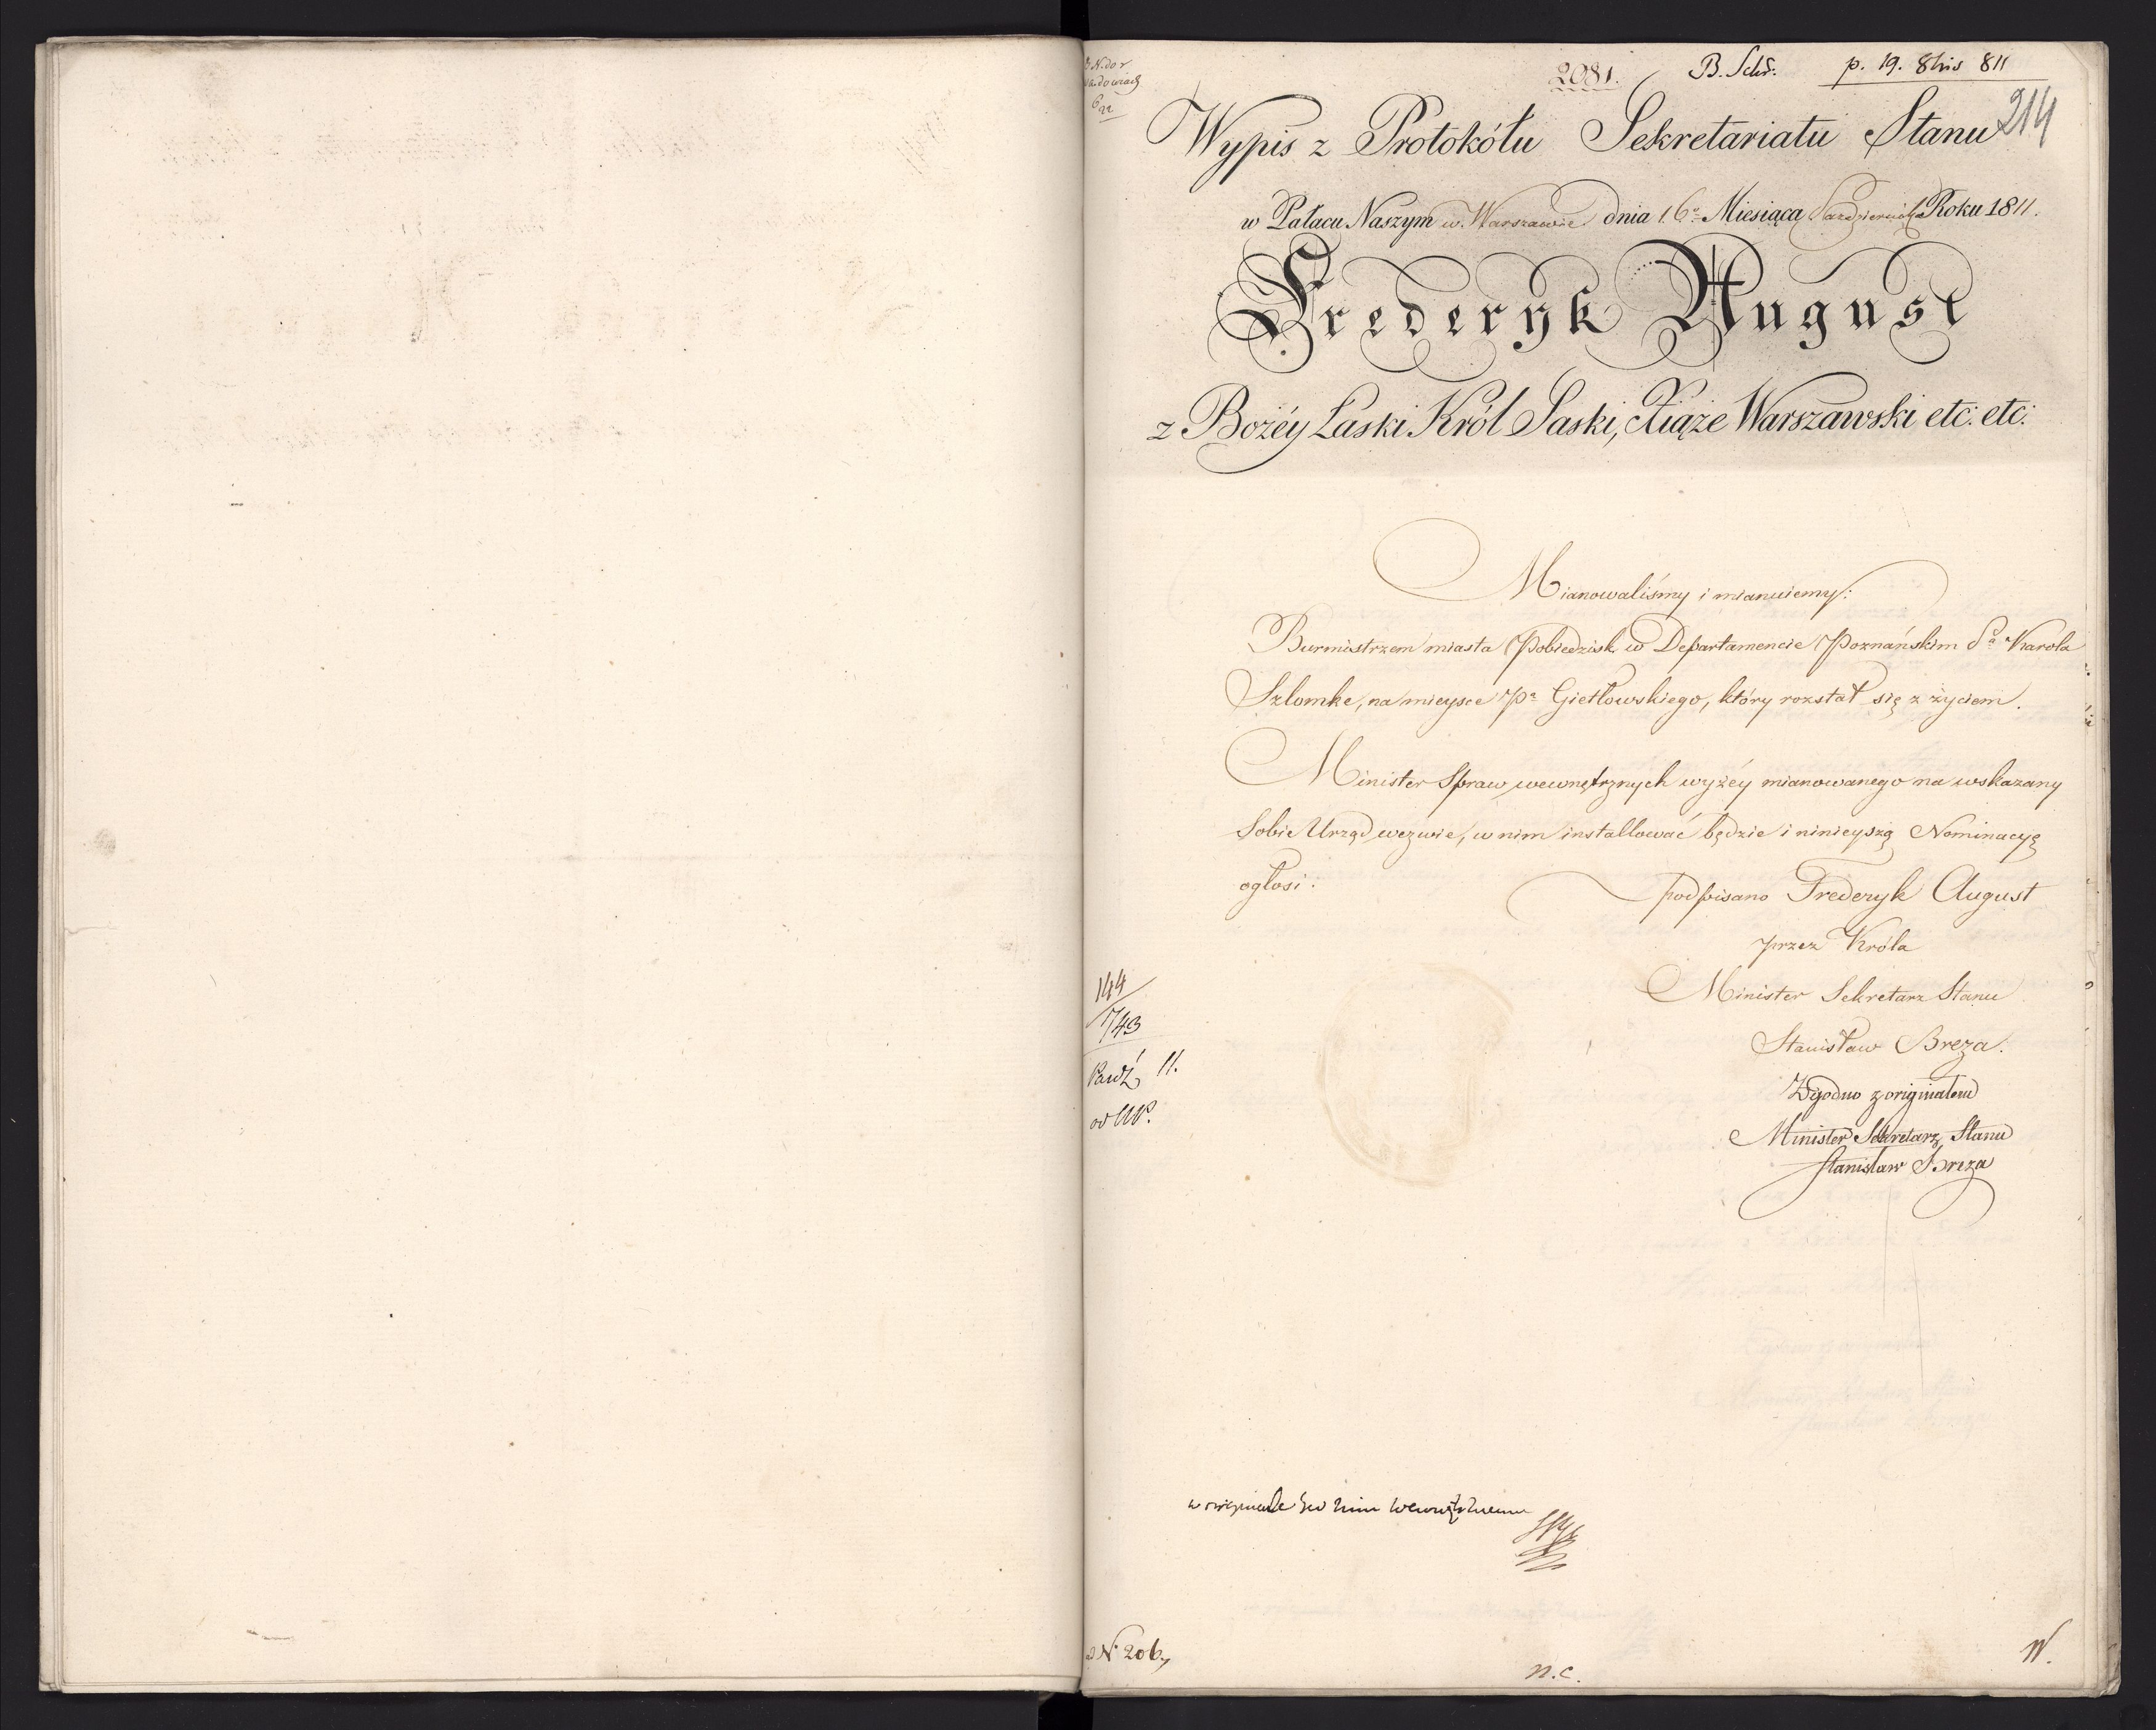 2081. B. Schr. p. 19. 8bris 811
214
Wypis z Protokółu Sekretariatu Stanu
w Pałacu Naszym w Warszawie dnia 16º Miesiąca Października Roku 1811.
Frederyk August
z Bożéy Łaski Król Saski, Xiąże Warszawski etc: etc:
Mianowaliśmy i mianuiemy:
Burmistrzem miasta Pobiedzisk w Departamencie Poznańskim Pª Karola
Szlomke, na mieysce Pª Gietłowskiego, który rozstał się z życiem.
Minister Spraw wewnętrznych wyżéy mianowanego na wskazany
Sobie Urząd wezwie, w nim installować będzie i ninieyszą Nominacyę
ogłosi.
podpisano Frederyk August
przez Króla
Minister Sekretarz Stanu
Stanisław Breza.
Zgodno z originałem
Minister Sekretarz Stanu
Stanisław Breza
144
1743
Paźdź 11.
N. 206
n.c.
W.